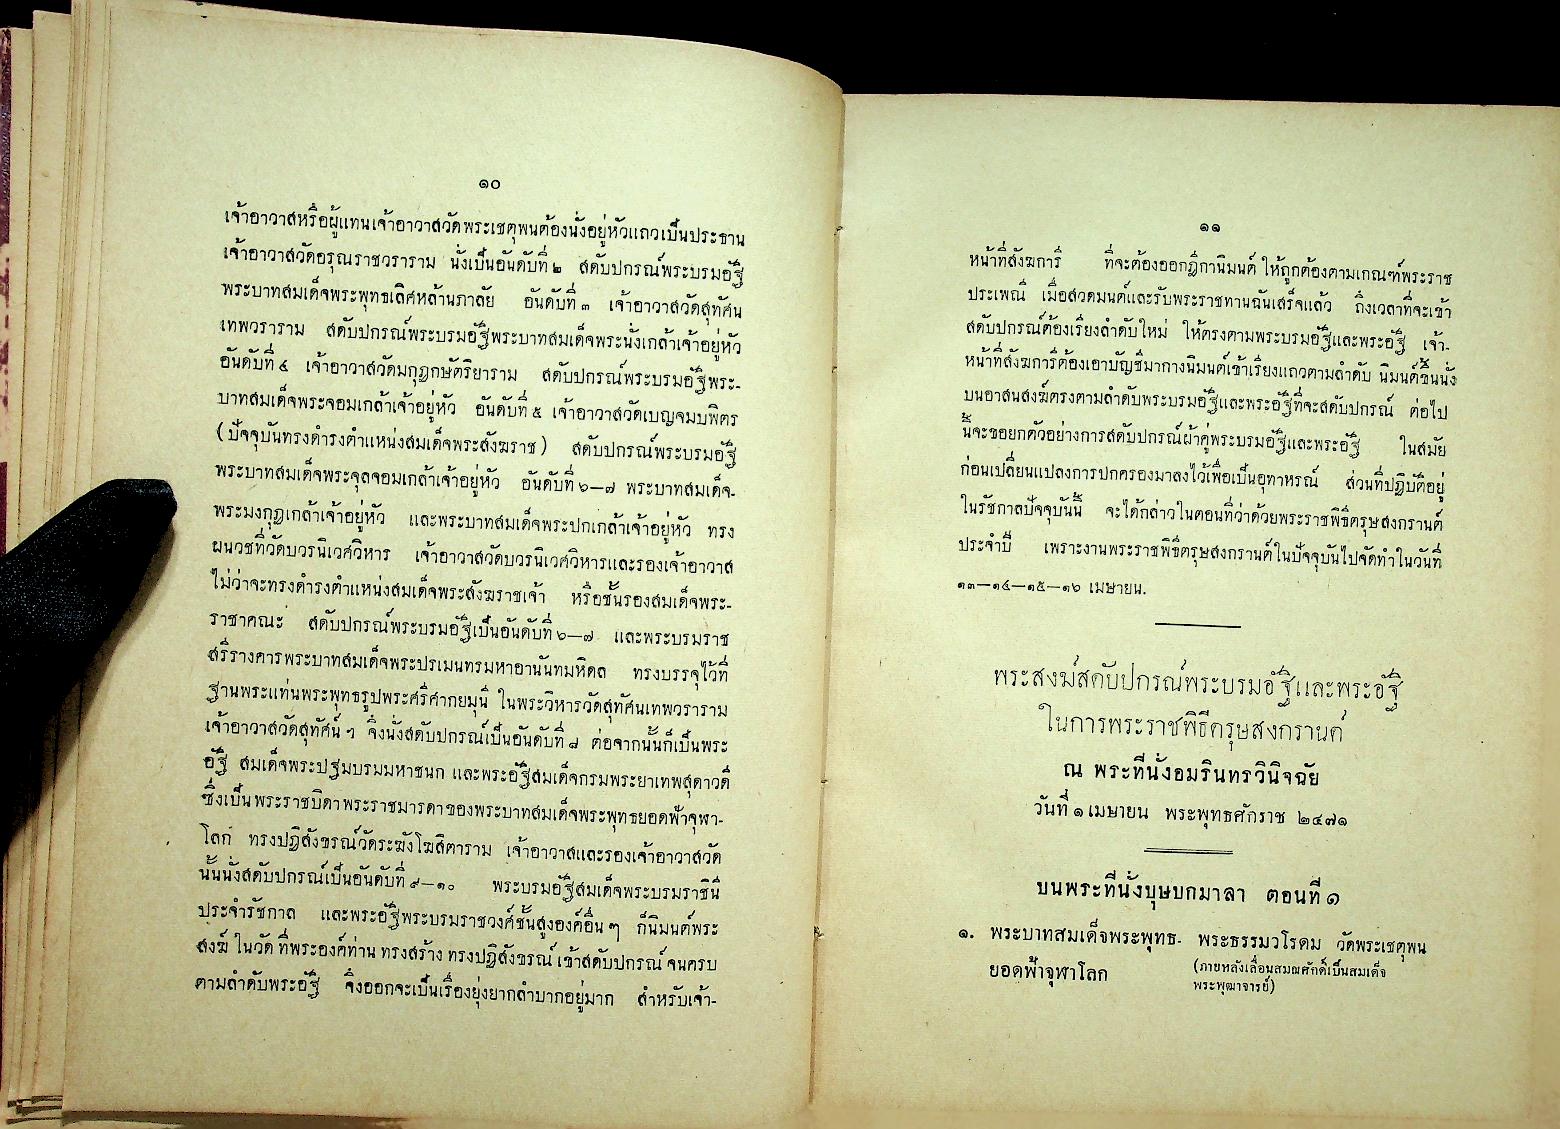 ๑๐
เจ้าอาวาสหรือผู้แทนเจ้าอาวาสวัดพระเชตุพนต้องนั่งอยู่หัวแถวเป็นประธาน
เจ้าอาวาสวัดอรุณราชวราราม นั่งเป็นอันดับที่ ๒ สดับปกรณ์พระบรมอัฐิ
พระบาทสมเด็จพระพุทธเลิศหล้านภาลัย อันดับที่ ๓ เจ้าอาวาสวัดสุทัศน
เทพวราราม สดับปกรณ์พระบรมอัฐิพระบาทสมเด็จพระนั่งเกล้าเจ้าอยู่หัว
อันดับที่ ๔ เจ้าอาวาสวัดมกุฎกษัตริยาราม สดับปกรณ์พระบรมอัฐิพระ-
บาทสมเด็จพระจอมเกล้าเจ้าอยู่หัว อันดับที่ ๕ เจ้าอาวาสวัดเบญจมบพิตร
(ปัจจุบันทรงดำรงตำแหน่งสมเด็จพระสังฆราช) สดับปกรณ์พระบรมอัฐิ
พระบาทสมเด็จพระจุลจอมเกล้าเจ้าอยู่หัว อันดับที่ ๖—๗ พระบาทสมเด็จ-
พระมงกุฎเกล้าเจ้าอยู่หัว และพระบาทสมเด็จพระปกเกล้าเจ้าอยู่หัว ทรง
ผนวชที่วัดบวรนิเวศวิหาร เจ้าอาวาสวัดบวรนิเวศวิหารและรองเจ้าอาวาส
ไม่ว่าจะทรงดำรงตำแหน่งสมเด็จพระสังฆราชเจ้า หรือชั้นรองสมเด็จพระ-
ราชาคณะ สดับปกรณ์พระบรมอัฐิเป็นอันดับที่ ๖—๗ และพระบรมราช
สรีรางคารพระบาทสมเด็จพระปรเมนทรมหาอานันทมหิดล ทรงบรรจุไว้ที่
ฐานพระแท่นพระพุทธรูปพระศรีศากยมุนี ในพระวิหารวัดสุทัศนเทพวราราม
เจ้าอาวาสวัดสุทัศน์ ฯ จึงนั่งสดับปกรณ์เป็นอันดับที่ ๘ ต่อจากนั้นก็เป็นพระ
อัฐิ สมเด็จพระปฐมบรมมหาชนก และพระอัฐิสมเด็จกรมพระยาเทพสุดาวดี
ซึ่งเป็นพระราชบิดาพระราชมารดาของพระบาทสมเด็จพระพุทธยอดฟ้าจุฬา-
โลก ทรงปฏิสังขรณ์วัดระฆังโฆสิตาราม เจ้าอาวาสและรองเจ้าอาวาสวัด
นั้นนั่งสดับปกรณ์เป็นอันดับที่ ๙—๑๐ พระบรมอัฐิสมเด็จพระบรมราชินี
ประจำรัชกาล และพระอัฐิพระบรมราชวงศ์ชั้นสูงองค์อื่น ๆ ก็นิมนต์พระ
สงฆ์ ในวัด ที่พระองค์ท่าน ทรงสร้าง ทรงปฏิสังขรณ์ เข้าสดับปกรณ์ จนครบ
ตามลำดับพระอัฐิ จึงออกจะเป็นเรื่องยุ่งยากลำบากอยู่มาก สำหรับเจ้า-
๑๑
หน้าที่สังฆการี ที่จะต้องออกฎีกานิมนต์ ให้ถูกต้องตามเกณฑ์พระราช
ประเพณี เมื่อสวดมนต์และรับพระราชทานฉันเสร็จแล้ว ถึงเวลาที่จะเข้า
สดับปกรณ์ต้องเรียงลำดับใหม่ ให้ตรงตามพระบรมอัฐิและพระอัฐิ เจ้า-
หน้าที่สังฆการีต้องเอาบัญชีมากางนิมนต์เข้าเรียงแถวตามลำดับ นิมนต์ขึ้นนั่ง
บนอาสนสงฆ์ตรงตามลำดับพระบรมอัฐิและพระอัฐิที่จะสดับปกรณ์ ต่อไป
นี้จะขอยกตัวอย่างการสดับปกรณ์ผ้าคู่พระบรมอัฐิและพระอัฐิ ในสมัย
ก่อนเปลี่ยนแปลงการปกครองมาลงไว้เพื่อเป็นอุทาหรณ์ ส่วนที่ปฏิบัติอยู่
ในรัชกาลปัจจุบันนี้ จะได้กล่าวในตอนที่ว่าด้วยพระราชพิธีตรุษสงกรานต์
ประจำปี เพราะงานพระราชพิธีตรุษสงกรานต์ในปัจจุบันไปจัดทำในวันที่
๑๓—๑๔—๑๕—๑๖ เมษายน.
พระสงฆ์สดับปกรณ์พระบรมอัฐิและพระอัฐิ
ในการพระราชพิธีตรุษสงกรานต์
ณ พระที่นั่งอมรินทรวินิจฉัย
วันที่ ๑ เมษายน พระพุทธศักราช ๒๔๗๑
บนพระที่นั่งบุษบกมาลา ตอนที่ ๑
๑. พระบาทสมเด็จพระพุทธ- พระธรรมวโรดม วัดพระเชตุพน
ยอดฟ้าจุฬาโลก (ภายหลังเลื่อนสมณศักดิ์เป็นสมเด็จ
พระพุฒาจารย์)